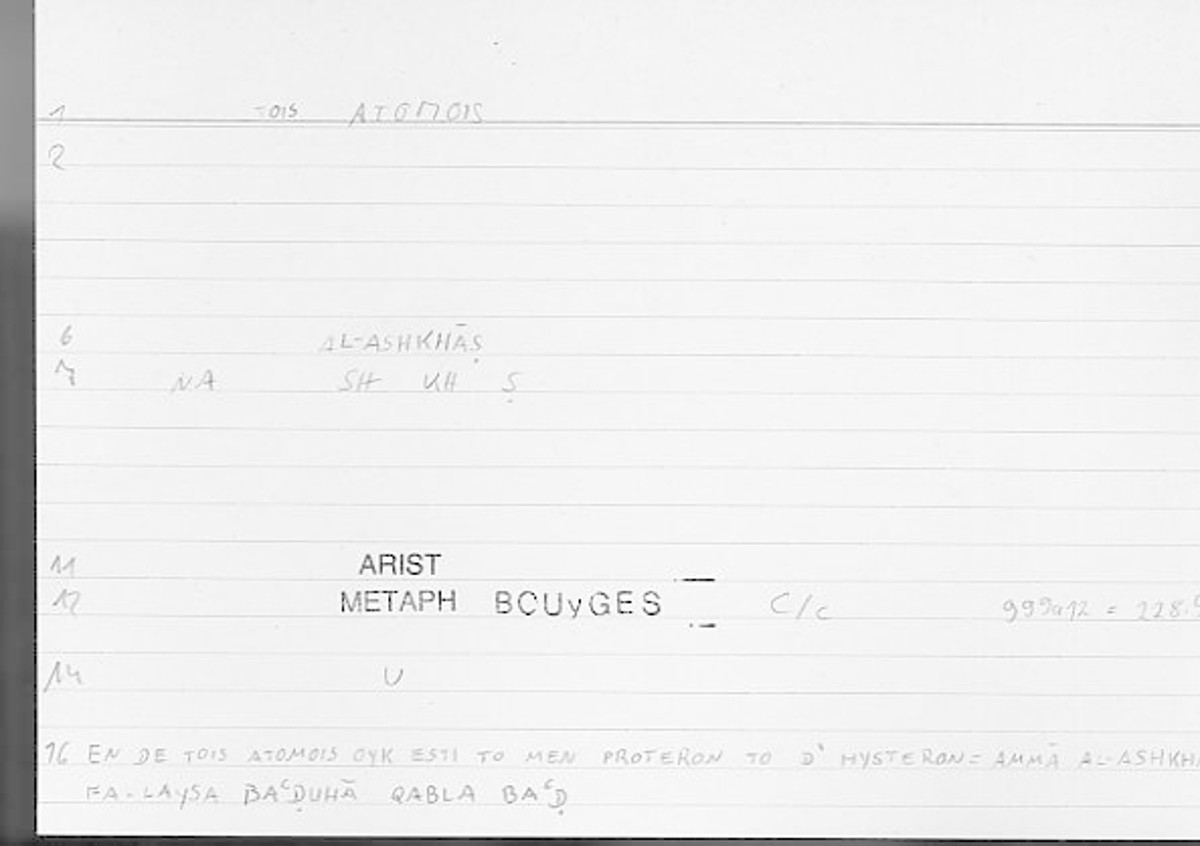 1 TOIS ATOMOIS
2
6 AL-ASHKHĀṢ
7 NA SH KH Ṣ
11 ARIST
12 METAPH BOUyGES C/c 999a12 = 228.
14 U
16 EN DE TOIS ATOMOIS OYK ESTI TO MEN PROTERON TO D' HYSTERON = AMMĀ AL-ASHKHĀ
FA-LAYSA BAʿḌUHĀ QABLA BAʿḌ